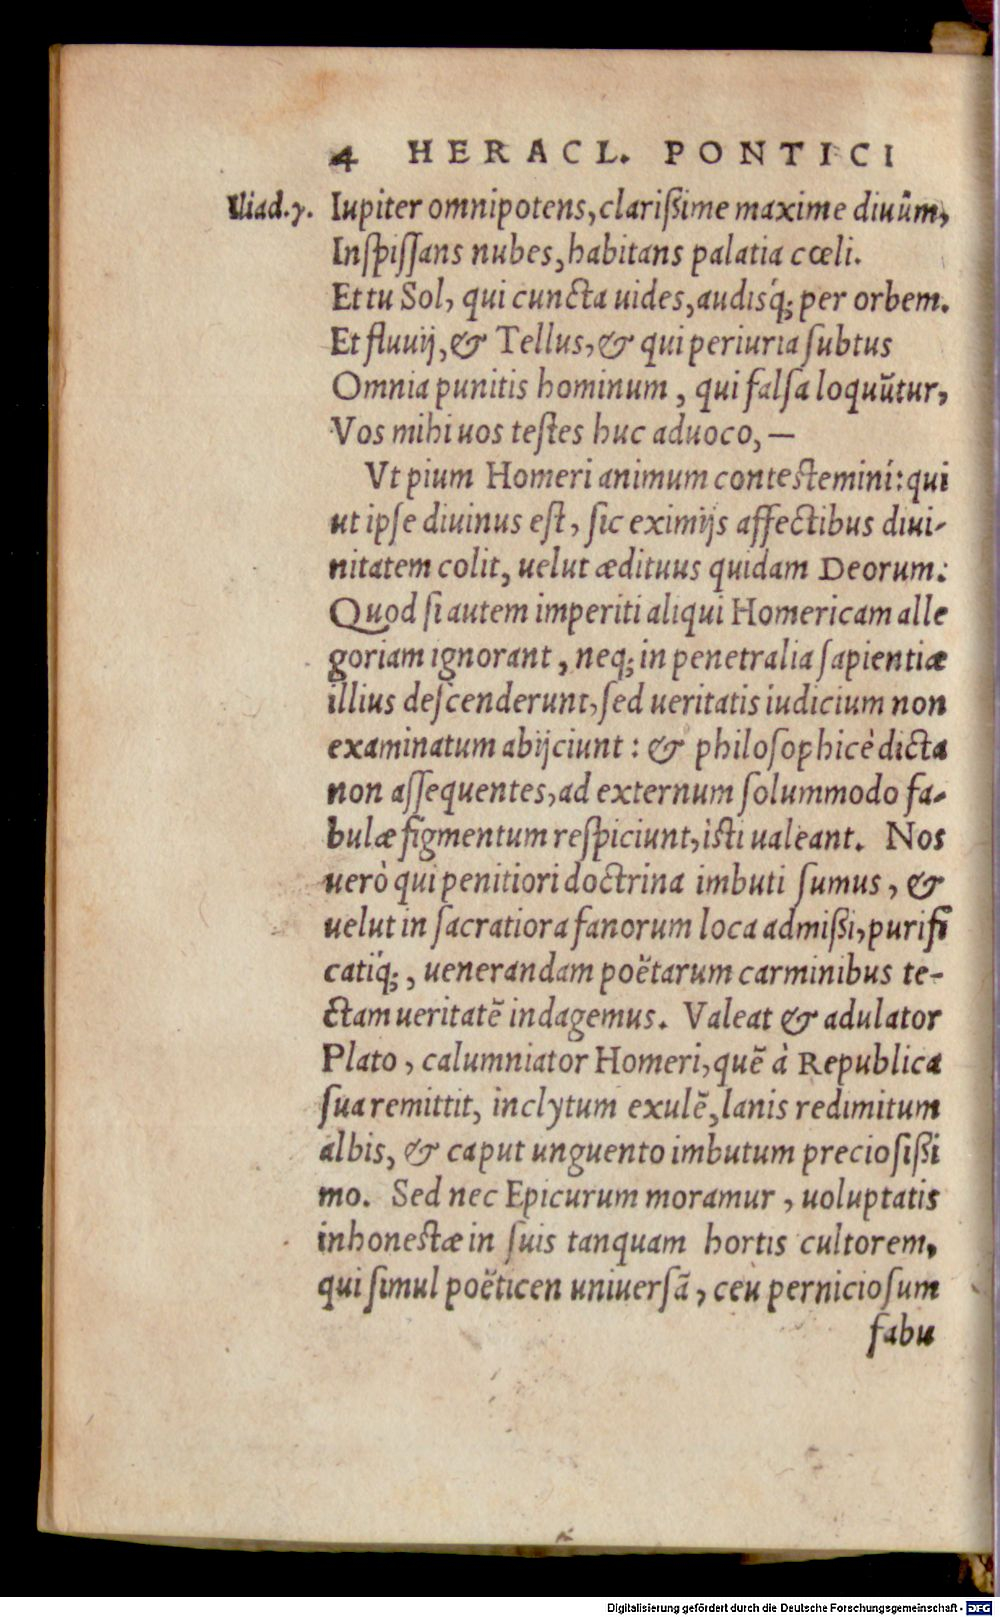 4 HERACL. PONTICI
Iliad.γ. Iupiter omnipotens, clarißime maxime diuûm,
Inſpiſſans nubes, habitans palatia cœli.
Et tu Sol, qui cuncta uides, audisq́; per orbem.
Et fluuij, & Tellus, & qui periuria ſubtus
Omnia punitis hominum, qui falſa loquũtur,
Vos mihi uos teſtes huc aduoco, —
Vt pium Homeri animum contestemini: qui
ut ipſe diuinus eſt, ſic eximijs affectibus diui-
nitatem colit, uelut ædituus quidam Deorum.
Quod ſi autem imperiti aliqui Homericam alle
goriam ignorant, neq; in penetralia ſapientiæ
illius deſcenderunt, ſed ueritatis iudicium non
examinatum abijciunt: & philoſophicè dicta
non aſſequentes, ad externum ſolummodo fa-
bulæ figmentum reſpiciunt, iſti ualeant. Nos
uerò qui penitiori doctrina imbuti ſumus, &
uelut in ſacratiora fanorum loca admißi, purifi
catiq́;, uenerandam poëtarum carminibus te-
ctam ueritatẽ indagemus. Valeat & adulator
Plato, calumniator Homeri, quẽ à Republica
ſua remittit, inclytum exulẽ, lanis redimitum
albis, & caput unguento imbutum precioſißi
mo. Sed nec Epicurum moramur, uoluptatis
inhoneſtæ in ſuis tanquam hortis cultorem,
qui ſimul poëticen uniuerſã, ceu pernicioſum
fabu
Digitalisierung gefördert durch die Deutsche Forschungsgemeinschaft - DFG